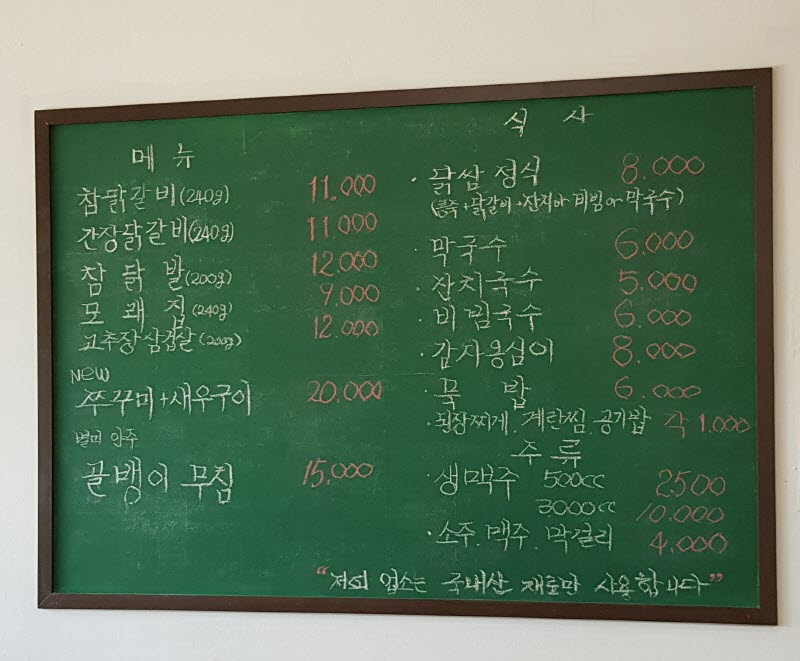 메 뉴
참닭갈비(240g) 11.000
간장닭갈비(240g) 11.000
참 닭 발(200g) 12.000
모 래 집(240g) 9,000
고추장삼겹살(200g) 12.000
NEW
쭈꾸미+새우구이 20.000
별미 안주
골뱅이 무침 15,000
식 사
· 닭쌈 정식 8.000
막국수)
· 막국수 6.000
· 잔치국수 5.000
· 비빔국수 6.000
· 감자옹심이 8.000
· 묵 밥 6.000
· 된장찌게, 계란찜, 공기밥 각 1.000
주 류
· 생맥주 500cc 2500
3000cc 10.000
· 소주. 맥주. 막걸리 4,000
"저희 업소는 국내산 재료만 사용합니다"